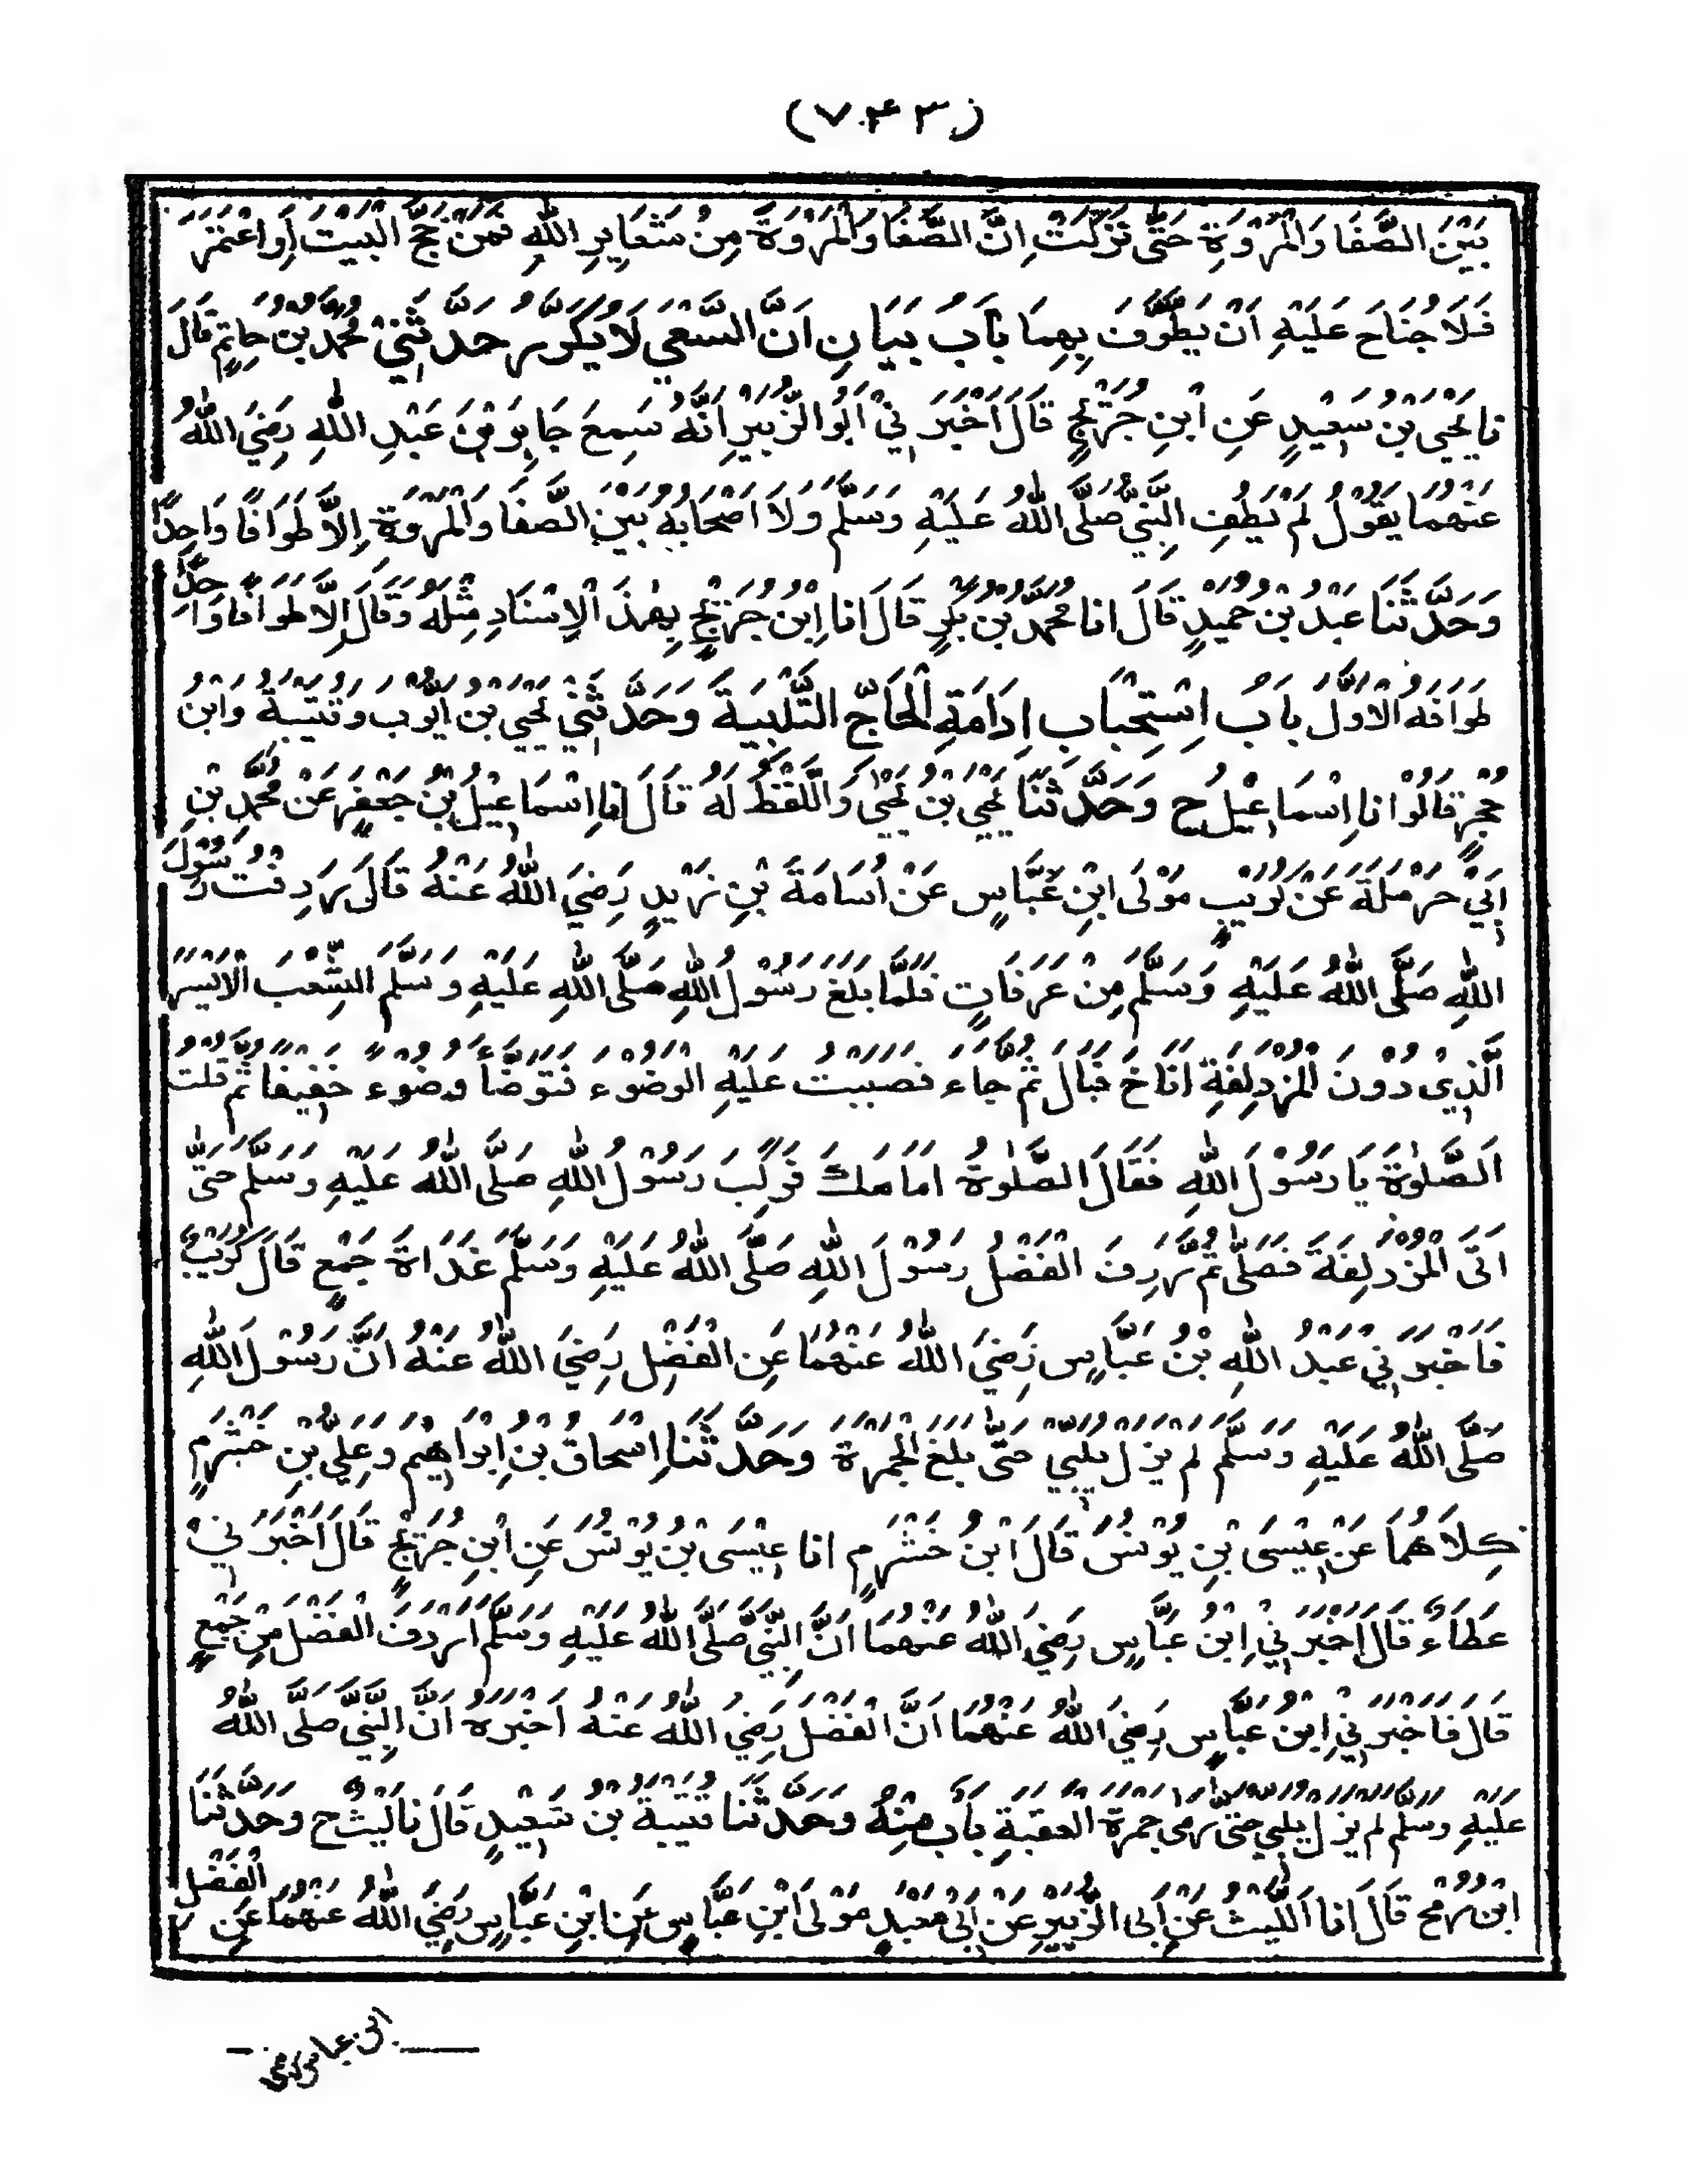 (٧٤٣)
بَيْنَ الصَّفَا وَالْمَرْوَةِ حَتّٰى نَزَلَتْ اِنَّ الصَّفَا وَالْمَرْوَةَ مِنْ شَعَايِرِ اللّٰهِ فَمَنْ حَجَّ الْبَيْتَ أَوِ اعْتَمَرَ
فَلَا جُنَاحَ عَلَيْهِ اَنْ يَطَّوَّفَ بِهِمَا بَابُ بَيَانِ اَنَّ السَّعْيَ لَا يُكَرَّرُ حَدَّثَنِيْ مُحَمَّدُ بْنُ حَاتِمٍ قَالَ
نا يَحْيَى بْنُ سَعِيْدٍ عَنِ ابْنِ جُرَيْجٍ قَالَ اَخْبَرَنِيْ اَبُو الزُّبَيْرِ اَنَّهُ سَمِعَ جَابِرَ بْنَ عَبْدِ اللّٰهِ رَضِيَ اللّٰهُ
عَنْهُمَا يَقُوْلُ لَمْ يَطُفِ النَّبِيُّ صَلَّى اللّٰهُ عَلَيْهِ وَسَلَّمَ وَلَا اَصْحَابُهُ بَيْنَ الصَّفَا وَالْمَرْوَةِ اِلَّا طَوَافًا وَاحِدًا
وَحَدَّثَنَا عَبْدُ بْنُ حُمَيْدٍ قَالَ انا مُحَمَّدُ بْنُ بَكْرٍ قَالَ انا اِبْنُ جُرَيْجٍ بِهٰذَ الْاِسْنَادِ مِثْلَهُ وَقَالَ اِلَّا طَوَافًا وَاحِدًا
طَوَافَهُ الْاَوَّلَ بَابُ اِسْتِحْبَابِ اِدَامَةِ الْحَاجِّ التَّلْبِيَةَ وَحَدَّثَنِيْ يَحْيَى بْنُ اَيُّوْبَ وَقُتَيْبَةُ وَابْنُ
حُجْرٍ قَالُوْا انا اِسْمَاعِيْلُ ح وَحَدَّثَنَا يَحْيَى بْنُ يَحْيَى وَاللَّفْظُ لَهُ قَالَ انا اِسْمَاعِيْلُ بْنُ جَعْفَرٍ عَنْ مُحَمَّدِ بْنِ
اَبِيْ حَرْمَلَةَ عَنْ كُرَيْبٍ مَوْلَى ابْنِ عَبَّاسٍ عَنْ اُسَامَةَ بْنِ زَيْدٍ رَضِيَ اللّٰهُ عَنْهُ قَالَ رَدِفْتُ رَسُوْلَ
اللّٰهِ صَلَّى اللّٰهُ عَلَيْهِ وَسَلَّمَ مِنْ عَرَفَاتٍ فَلَمَّا بَلَغَ رَسُوْلُ اللّٰهِ صَلَّى اللّٰهِ عَلَيْهِ وَسَلَّمَ الشِّعْبَ الْاَيْسَرَ
الَّذِيْ دُوْنَ الْمُزْدَلِفَةِ اَنَاخَ فَبَالَ ثُمَّ جَاءَ فَصَبَبْتُ عَلَيْهِ الْوَضُوْءَ فَتَوَضَّأَ وُضُوْءً خَفِيْفًا ثُمَّ قُلْتُ
اَلصَّلٰوةَ يَا رَسُوْلَ اللّٰهِ فَقَالَ الصَّلٰوةُ اَمَامَكَ فَرَكِبَ رَسُوْلُ اللّٰهِ صَلَّى اللّٰهُ عَلَيْهِ وَسَلَّمَ حَتّٰى
اَتَى الْمُزْدَلِفَةَ فَصَلّٰى ثُمَّ رَدِفَ الْفَضْلُ رَسُوْلَ اللّٰهِ صَلَّى اللّٰهُ عَلَيْهِ وَسَلَّمَ غَدَاةَ جَمْعٍ قَالَ كُرَيْبٌ
فَاَخْبَرَنِيْ عَبْدُ اللّٰهِ بْنُ عَبَّاسٍ رَضِيَ اللّٰهُ عَنْهُمَا عَنِ الْفَضْلِ رَضِيَ اللّٰهُ عَنْهُ اَنَّ رَسُوْلَ اللّٰهِ
صَلَّى اللّٰهُ عَلَيْهِ وَسَلَّمَ لَمْ يَزَلْ يُلَبِّيْ حَتّٰى بَلَغَ الْجَمْرَةَ وَحَدَّثَنَا اِسْحَاقُ بْنُ اِبْرَاهِيْمَ وَعَلِيُّ بْنُ خَشْرَمٍ
كِلَاهُمَا عَنْ عِيْسَى بْنِ يُوْنُسَ قَالَ ابْنُ خَشْرَمٍ انا عِيْسَى بْنُ يُوْنُسَ عَنِ ابْنِ جُرَيْجٍ قَالَ اَخْبَرَنِيْ
عَطَاءٌ قَالَ اَخْبَرَنِيْ اِبْنُ عَبَّاسٍ رَضِيَ اللّٰهُ عَنْهُمَا اَنَّ النَّبِيَّ صَلَّى اللّٰهُ عَلَيْهِ وَسَلَّمَ اَرْدَفَ الْفَضْلَ مِنْ جَمْعٍ
قَالَ فَاَخْبَرَنِيْ اِبْنُ عَبَّاسٍ رَضِيَ اللّٰهُ عَنْهُمَا اَنَّ الْفَضْلَ رَضِيَ اللّٰهُ عَنْهُ اَخْبَرَهُ اَنَّ النَّبِيَّ صَلَّى اللّٰهُ
عَلَيْهِ وَسَلَّمَ لَمْ يَزَلْ يُلَبِّيْ حَتّٰى رَمٰى جَمْرَةَ الْعَقَبَةِ بَابٌ مِنْهُ وَحَدَّثَنَا قُتَيْبَةُ بْنُ سَعِيْدٍ قَالَ نا لَيْثٌ ح وَحَدَّثَنَا
ابْنُ رُمْحٍ قَالَ انا اللَّيْثُ عَنْ اَبِى الزُّبَيْرِ عَنْ اَبِيْ مَعْبَدٍ مَوْلَى ابْنِ عَبَّاسٍ عَنِ ابْنِ عَبَّاسٍ رَضِيَ اللّٰهُ عَنْهُمَا عَنِ الْفَضْلِ